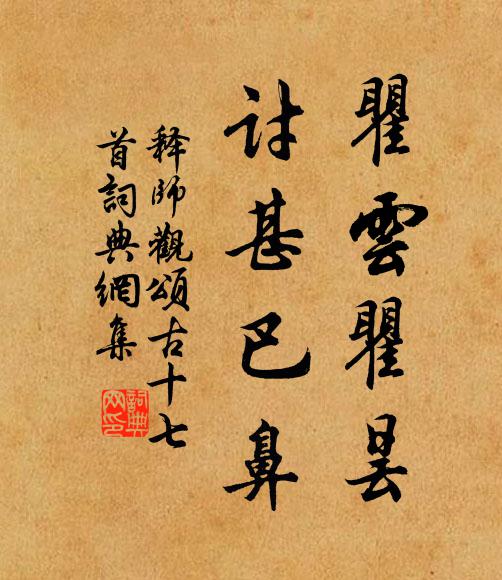 瞿雲瞿昙
討甚巴鼻
释師觀頌古十七
首詞典網集
詞典
网印